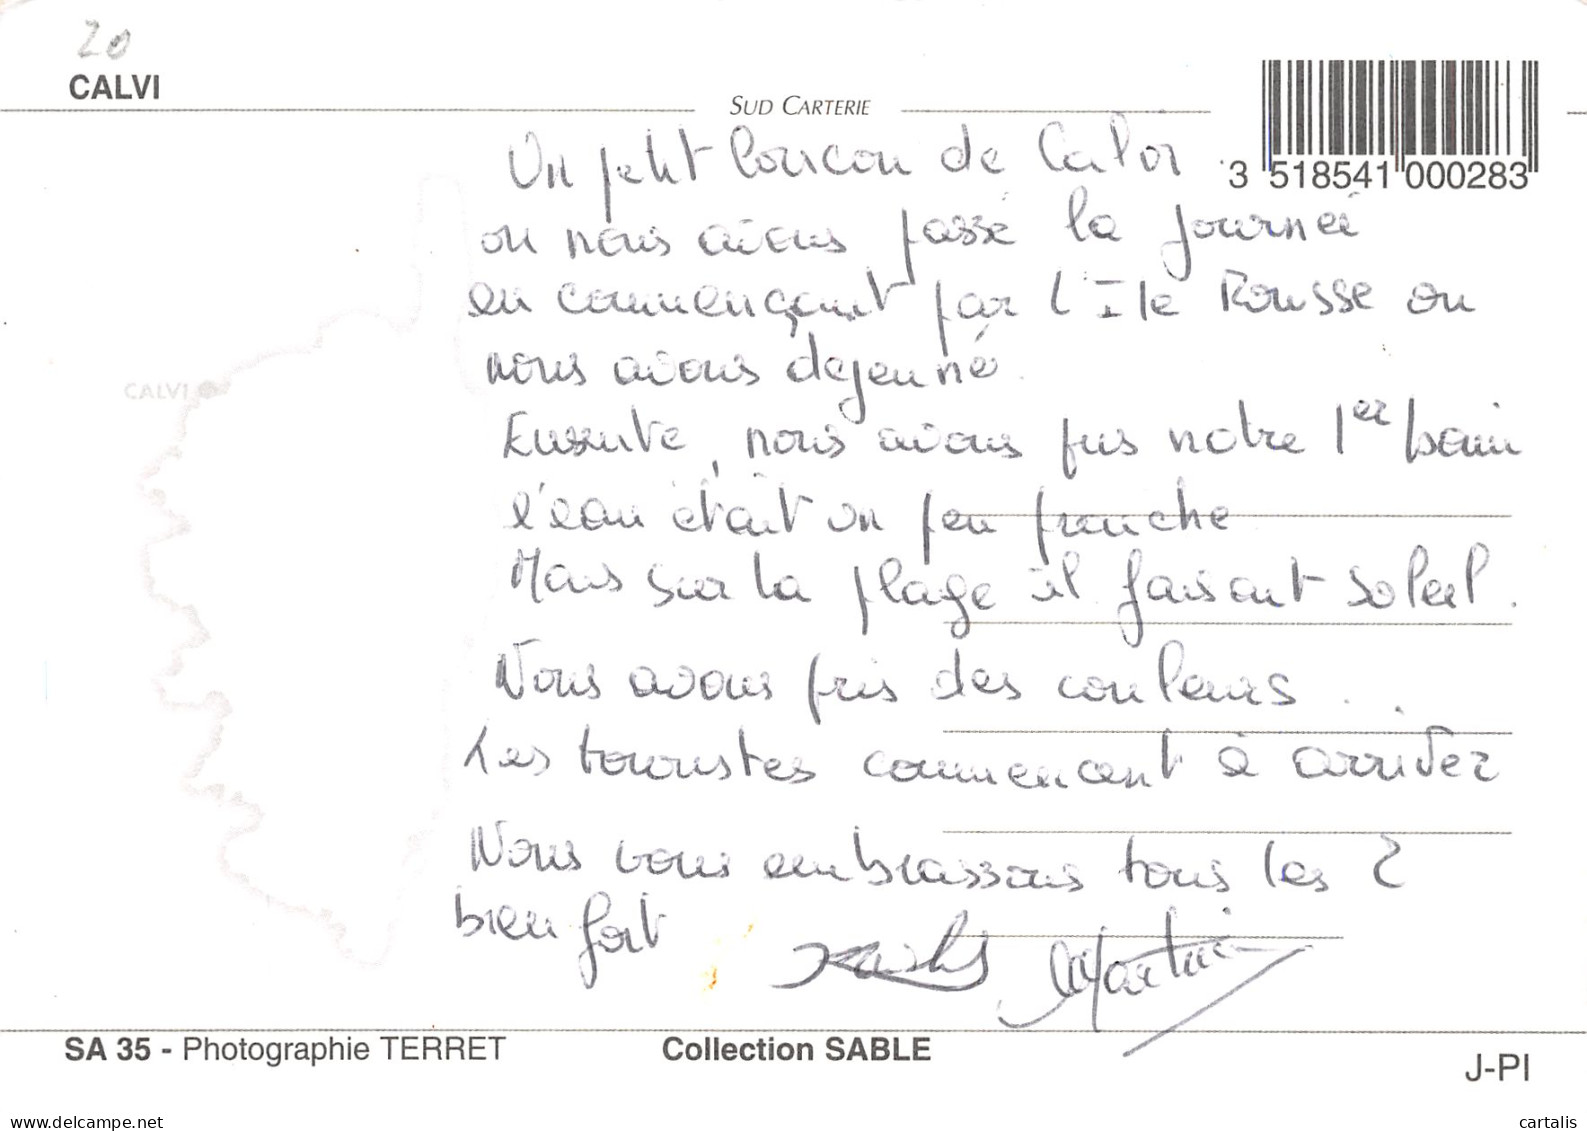 20
CALVI
SUD CARTERIE
3 518541 000283
Un petit coucou de Calvi
ou nous avons passé la journeé
en commençant par l'Ile Rousse ou
nous avons dejeuné.
CALVI
Ensuite, nous avons pris notre 1er bain
l'eau était un peu fraiche
Mais sur la plage il faisait soleil.
Nous avons pris des couleurs...
Les touristes commencent à arriver
Nous vous embrassons tous les 2
bien fort
Martine
SA 35 - Photographie TERRET
Collection SABLE
J-PI
delcampe.net
cartalis